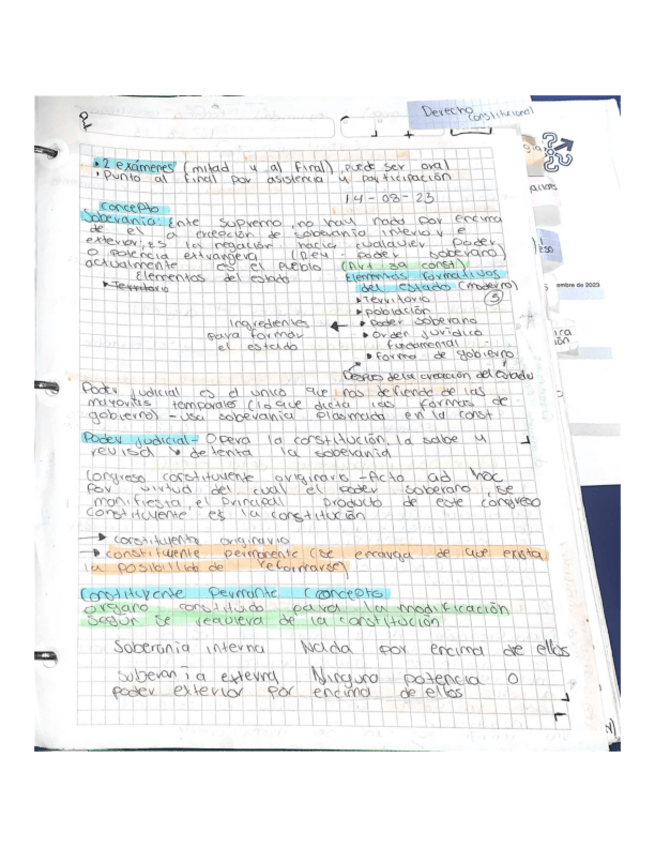 Derecho
constitucional
• 2 exámenes (mitad y al final), puede ser oral
• Punto al final por asistencia y participación
14-08-23
Concepto
Soberanía: Ente supremo, no hay nada por encima
de el a creeción de soberanía interior e
exterior, es la negación hacia cualquier poder
o potencia extranjera (Rey - poder soberano)
actualmente es el pueblo (Art 39 const.)
Elementos del estado
▸ Territorio
Elementos formativos
del estado (moderno)
▸ Territorio
▸ población
▸ Poder soberano
▸ Orden jurídico
fundamental
▸ forma de gobierno
5
Ingredientes
para formar
el estado
Despues de la creación del Estado
Poder judicial es el unico que nos defiende de las
mayorias temporales (lo que dicta las formas de
gobierno) - usa soberania plasmada en la const
Poder judicial - Opera la constitución, la sabe y
revisa detenta la soberania
Congreso constituyente originario - Acto ad hoc
por virtud del cual el poder soberano, se
manifiesta el principal producto de este congreso
constituyente es la constitución
→ constituyente originario
→ constituyente permanente (se encarga de que exista
la posibilidad de reformarse)
Constituyente permante (concepto
organo constituido para la modificación
según se requiera de la constitución
Soberanía interna Nada por encima de ellos
Soberanía externa Ninguna potencia o
poder exterior por encima de ellos
embre de 2023